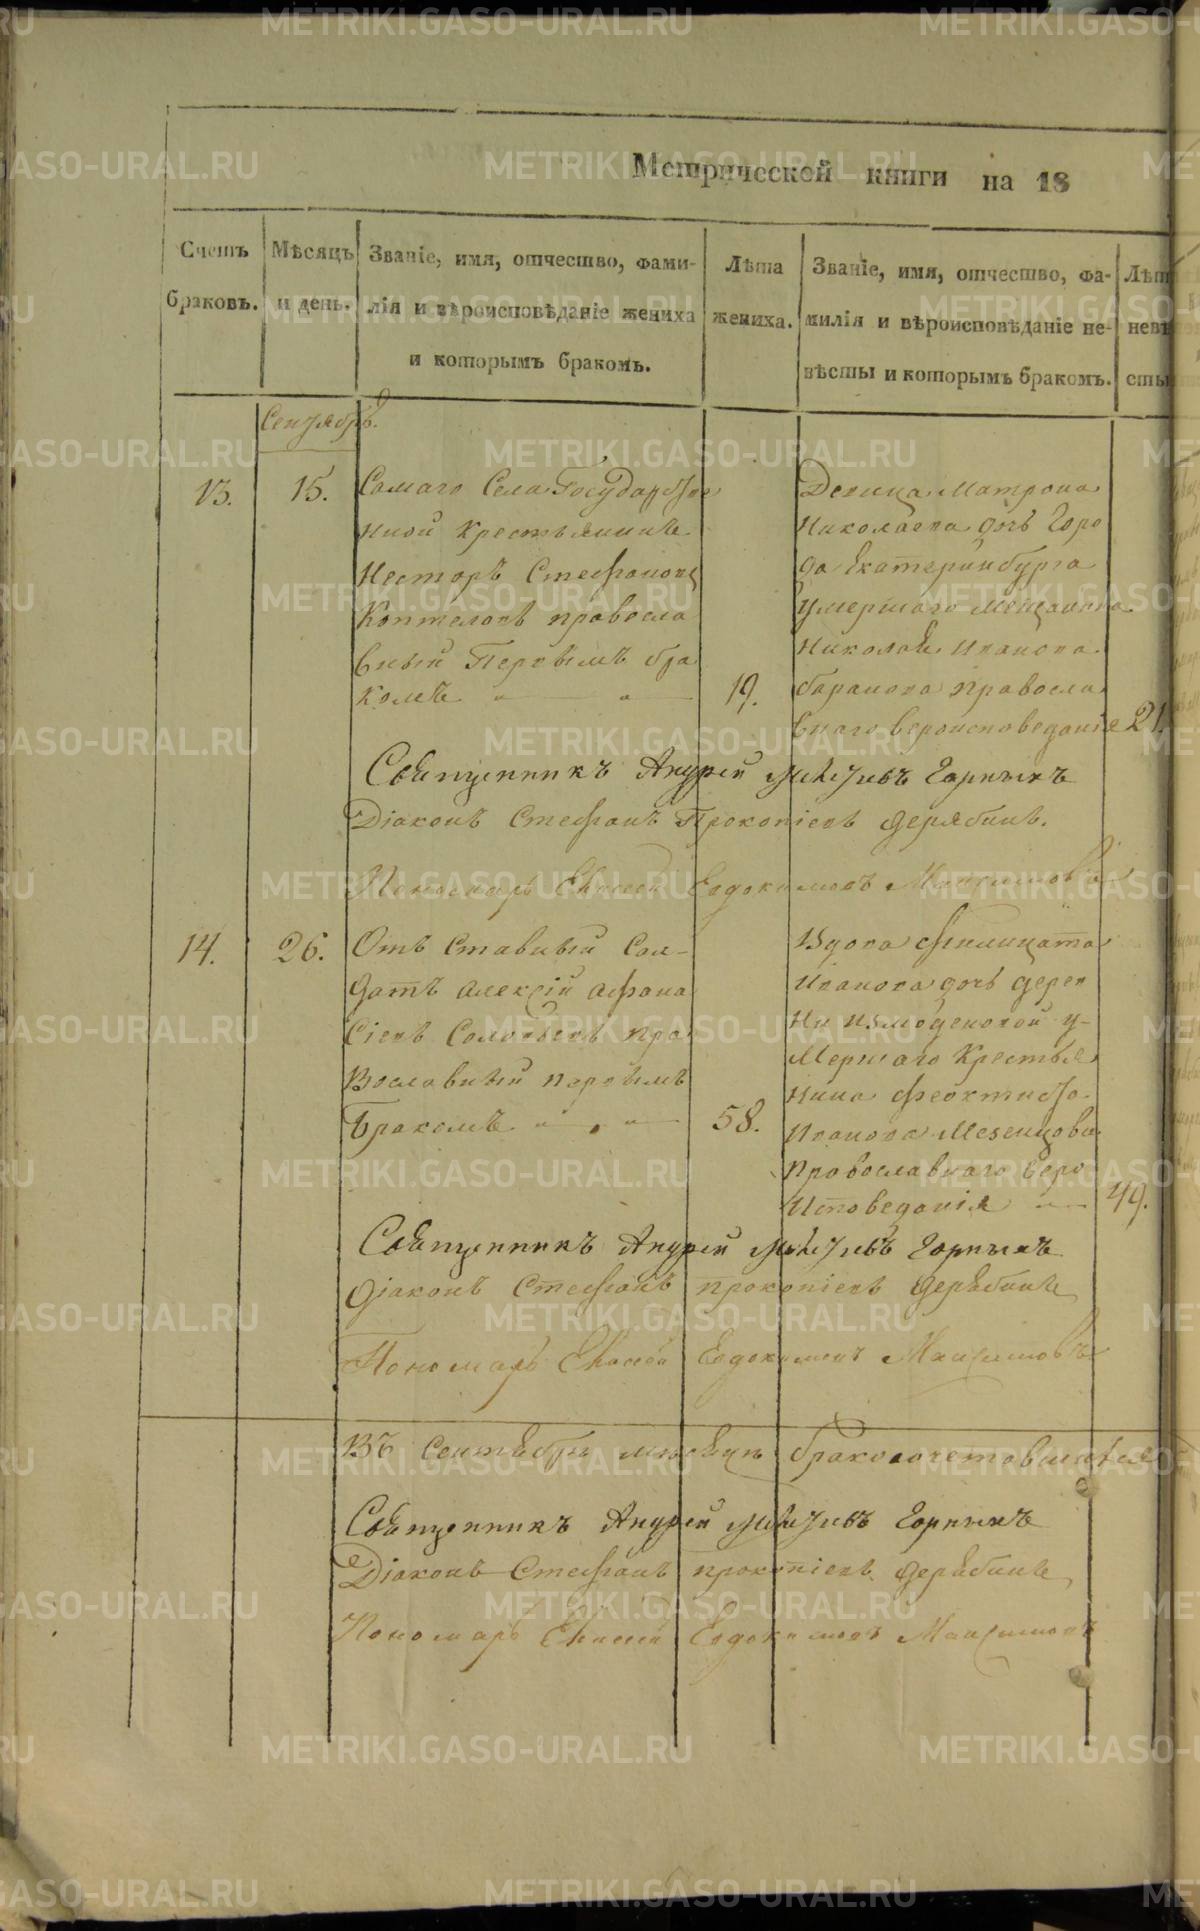 Метрической книги на 18
Счетъ браковъ.
Мѣсяцъ и день.
Званіе, имя, отчество, фами-
лія и вѣроисповѣданіе жениха
и которымъ бракомъ.
Лѣта
жениха.
Званіе, имя, отчество, фа-
милія и вѣроисповѣданіе не-
вѣсты и которымъ бракомъ.
Лѣт
невѣ
сты
Сентябрь.
13.
15.
Самаго Села Государстве
нной Крестьянинъ
Несторъ Стефановъ
Коптеловъ провосла
вный Первымъ бра
комъ
19.
Девица Матрона
Николаева дочь Горо
да Екатеринбурга
умершаго Мещанина
Николая Иванова
баранова Правосла
внаго вероисповеданія
21.
Священникъ Андрей Горныхъ
Діаконъ Стефанъ Прокопіевъ Дерябинъ.
Пономарь Елисей Евдокимовъ Максимовъ
14.
26.
Отъ Ставный Сол-
датъ Алексій Афона
Сіевъ Соловьевъ пра
Вославный первымъ
Бракомъ
58.
Вдова Филицата
Иванова дочь дерев
ни Измоденовой у-
Мершаго Крестья
нина Феоктиста
Иванова Мезенцова
Провославнаго веро
Исповеданія
49.
Священникъ Андрей Горныхъ
Діаконъ Стефанъ прокопіевъ Дерябинъ
Пономарь Елисей Евдокимовъ Максимовъ
Въ Сентябрѣ мѣсяцѣ
Священникъ Андрей Горныхъ
Діаконъ Стефанъ прокопіевъ Дерябинъ
Пономарь Елисей Евдокимовъ Максимовъ
METRIKI.GASO-URAL.RU